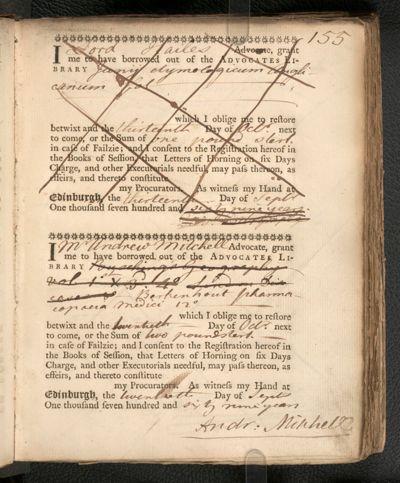 155
I Lord Hailes Advocate, grant
me to have borrowed out of the ADVOCATES LI-
BRARY Junij etymologicum Angli-
canum fol
which I oblige me to restore
betwixt and the thirteenth Day of Octr. next
to come, or the Sum of one pound sterl.
in case of Failzie; and I consent to the Registration hereof in
the Books of Session, that Letters of Horning on six Days
Charge, and other Executorials needful, may pass thereon, as
effeirs, and thereto constitute
my Procurators. As witness my Hand at
Edinburgh, the thirteenth Day of Septr
One thousand seven hundred and sixty nine years
I Mr Andrew Mitchell Advocate, grant
me to have borrowed out of the ADVOCATES LI-
BRARY Buschings geography
vol 1st
Berkenhout pharma-
copaeia medici 12o
which I oblige me to restore
betwixt and the twentieth Day of Octr. next
to come, or the Sum of two pound sterl.
in case of Failzie; and I consent to the Registration hereof in
the Books of Session, that Letters of Horning on six Days
Charge, and other Executorials needful, may pass thereon, as
effeirs, and thereto constitute
my Procurators. As witness my Hand at
Edinburgh, the twentieth Day of Septr
One thousand seven hundred and sixty nine years
Andr: Mitchell